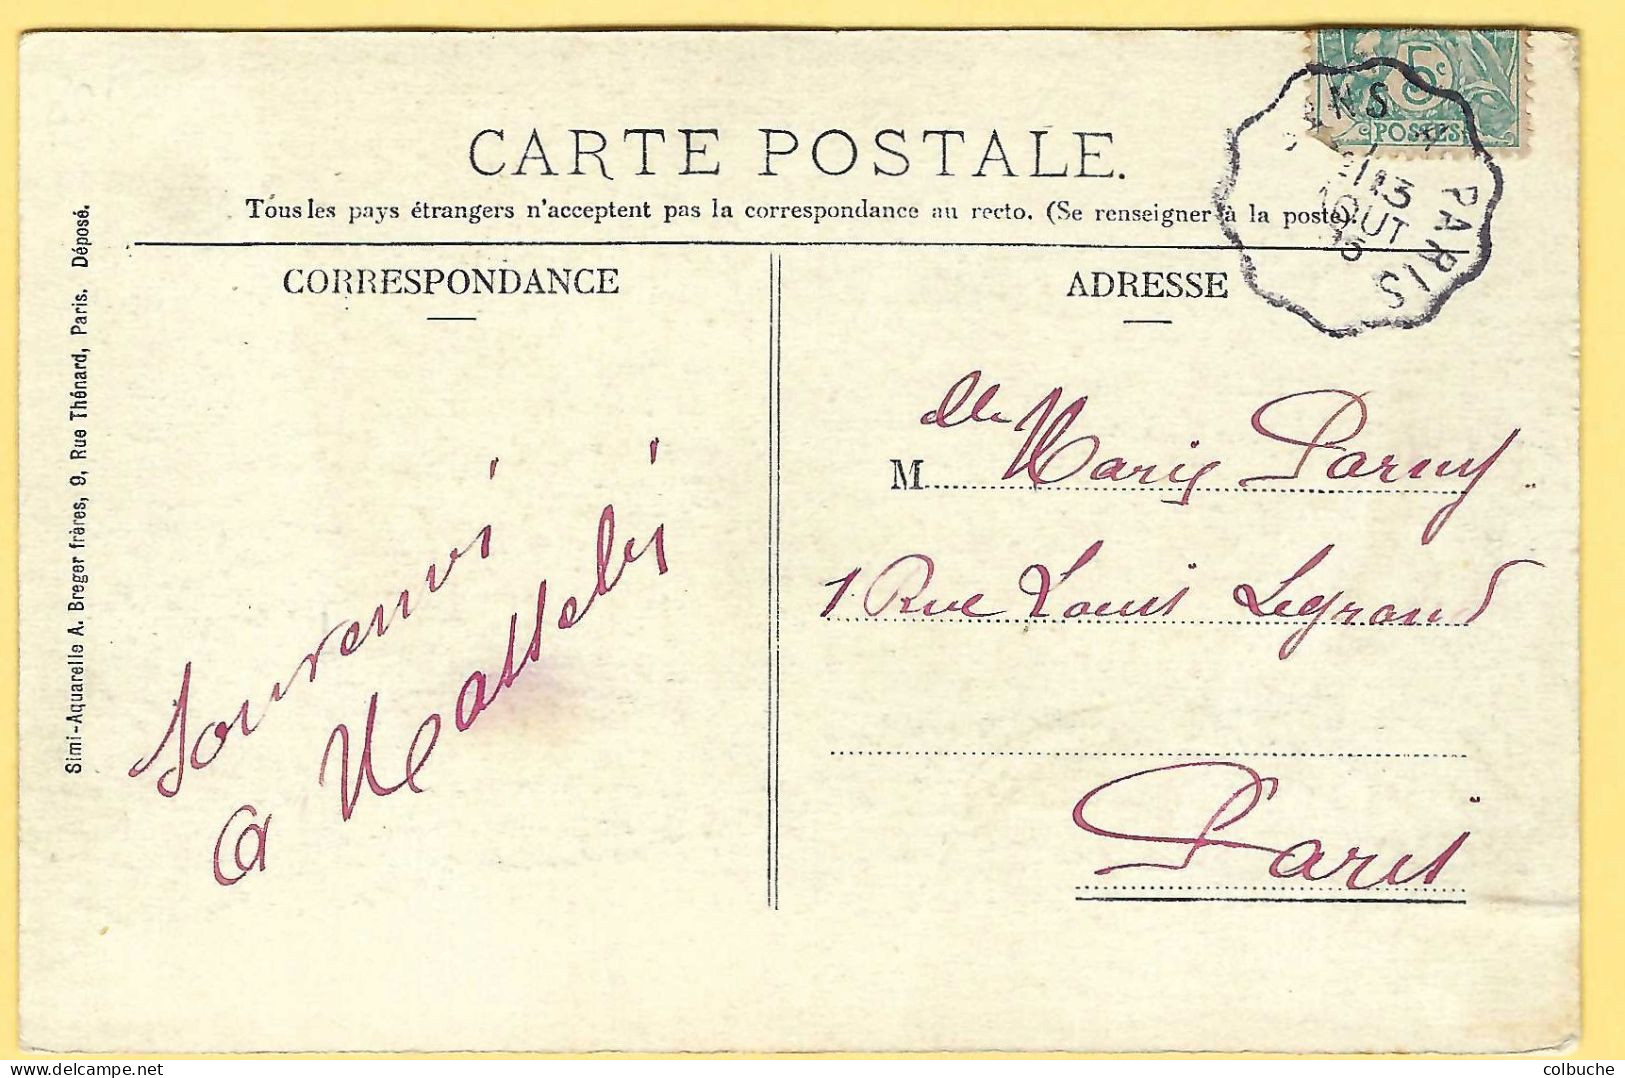 CARTE POSTALE.
Tous les pays étrangers n'acceptent pas la correspondance au recto. (Se renseigner à la poste).
CORRESPONDANCE
Souvenir
a
ADRESSE
M dlle Marie Parny
1 Rue Louis Legrand
Paris
Simi-Aquarelle A. Breger frères, 9, Rue Thénard, Paris. Déposé.
5c
POSTES
PARIS
colbuche